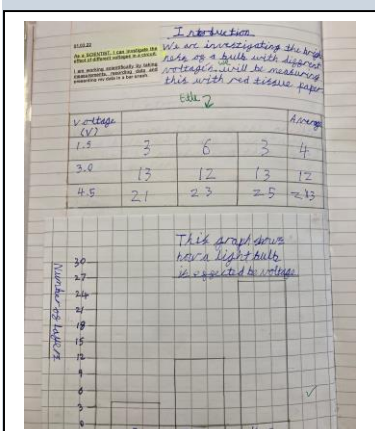 Introduction
As a SCIENTIST, I can investigate the effect of different voltages in a circuit.
I am working scientifically by taking measurements, recording data and presenting my data in a bar graph.
We are investigating the brightness of a bulb with different
voltages. will be measuring
this with red tissue paper
title
Voltage (V) Average
1.5 3 6 3 4
3.0 13 12 13 12
4.5 21 23 25
This graph shows
how a light bulb
is effected be voltage
Number of layers
30
27
24
21
18
15
12
9
6
3